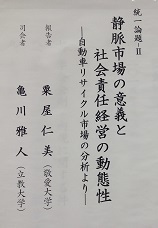 統一論題－Ⅱ
静脈市場の意義と
社会責任経営の動態性
―自動車リサイクル市場の分析より―
報告者　粟屋仁美（敬愛大学）
司会者　亀川雅人（立教大学）